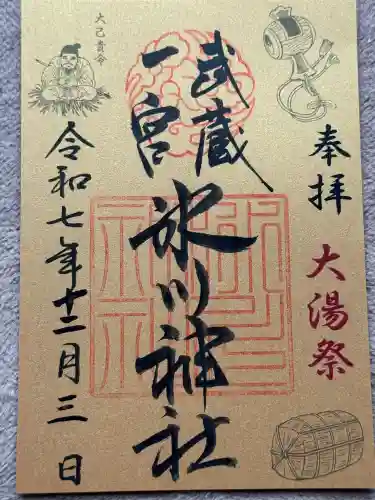 奉拝
大湯祭
武蔵
一宮
氷川神社
令和七年十二月三日
大己貴命